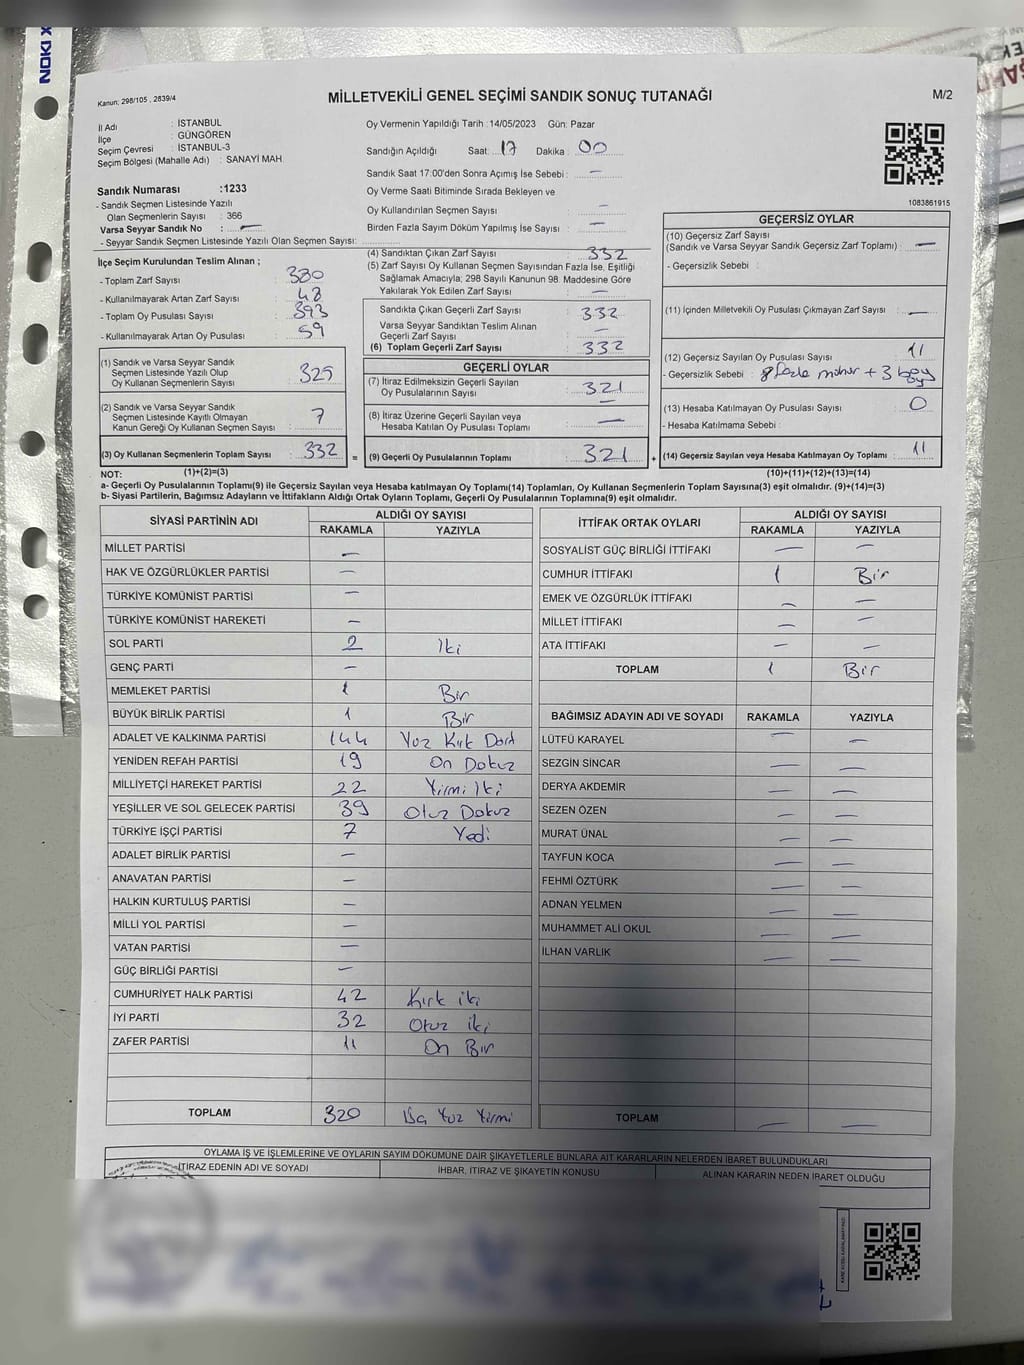 NOKI X
Kanun; 298/105 , 2839/4
MİLLETVEKİLİ GENEL SEÇİMİ SANDIK SONUÇ TUTANAĞI
M/2
İl Adı : İSTANBUL
İlçe : GÜNGÖREN
Seçim Çevresi : İSTANBUL-3
Seçim Bölgesi (Mahalle Adı) : SANAYİ MAH.
Oy Vermenin Yapıldığı Tarih :14/05/2023 Gün: Pazar
Sandığın Açıldığı Saat: 17 Dakika : 00
Sandık Saat 17:00'den Sonra Açımış İse Sebebi : —
Oy Verme Saati Bitiminde Sırada Bekleyen ve
Oy Kullandırılan Seçmen Sayısı : —
Birden Fazla Sayım Döküm Yapılmış İse Sayısı : —
1083861915
Sandık Numarası :1233
- Sandık Seçmen Listesinde Yazılı
Olan Seçmenlerin Sayısı : 366
Varsa Seyyar Sandık No : —
- Seyyar Sandık Seçmen Listesinde Yazılı Olan Seçmen Sayısı:
İlçe Seçim Kurulundan Teslim Alınan ;
- Toplam Zarf Sayısı : 380
- Kullanılmayarak Artan Zarf Sayısı : 48
- Toplam Oy Pusulası Sayısı : 393
- Kullanılmayarak Artan Oy Pusulası : 59
(1) Sandık ve Varsa Seyyar Sandık
Seçmen Listesinde Yazılı Olup
Oy Kullanan Seçmenlerin Sayısı : 325
(2) Sandık ve Varsa Seyyar Sandık
Seçmen Listesinde Kayıtlı Olmayan
Kanun Gereği Oy Kullanan Seçmen Sayısı : 7
(3) Oy Kullanan Seçmenlerin Toplam Sayısı : 332 =
(4) Sandıktan Çıkan Zarf Sayısı : 332
(5) Zarf Sayısı Oy Kullanan Seçmen Sayısından Fazla İse, Eşitliği
Sağlamak Amacıyla; 298 Sayılı Kanunun 98. Maddesine Göre
Yakılarak Yok Edilen Zarf Sayısı : —
Sandıkta Çıkan Geçerli Zarf Sayısı : 332
Varsa Seyyar Sandıktan Teslim Alınan
Geçerli Zarf Sayısı : —
(6) Toplam Geçerli Zarf Sayısı : 332
GEÇERLİ OYLAR
(7) İtiraz Edilmeksizin Geçerli Sayılan
Oy Pusulalarının Sayısı : 321
(8) İtiraz Üzerine Geçerli Sayılan veya
Hesaba Katılan Oy Pusulası Toplamı : —
(9) Geçerli Oy Pusulalarının Toplamı : 321 +
GEÇERSİZ OYLAR
(10) Geçersiz Zarf Sayısı
(Sandık ve Varsa Seyyar Sandık Geçersiz Zarf Toplamı) : —
- Geçersizlik Sebebi :
(11) İçinden Milletvekili Oy Pusulası Çıkmayan Zarf Sayısı : —
(12) Geçersiz Sayılan Oy Pusulası Sayısı : 11
- Geçersizlik Sebebi : 8 fazla mühür + 3 boş
(13) Hesaba Katılmayan Oy Pusulası Sayısı : 0
- Hesaba Katılmama Sebebi :
(14) Geçersiz Sayılan veya Hesaba Katılmayan Oy Toplamı : 11
NOT: (1)+(2)=(3) (10)+(11)+(12)+(13)=(14)
a- Geçerli Oy Pusulalarının Toplamı(9) ile Geçersiz Sayılan veya Hesaba Katılmayan Oy Toplamı(14) Toplamları, Oy Kullanan Seçmenlerin Toplam Sayısına(3) eşit olmalıdır. (9)+(14)=(3)
b- Siyasi Partilerin, Bağımsız Adayların ve İttifakların Aldığı Ortak Oyların Toplamı, Geçerli Oy Pusulalarının Toplamına(9) eşit olmalıdır.
SİYASİ PARTİNİN ADI ALDIĞI OY SAYISI
RAKAMLA YAZIYLA
MİLLET PARTİSİ —
HAK VE ÖZGÜRLÜKLER PARTİSİ —
TÜRKİYE KOMÜNİST PARTİSİ —
TÜRKİYE KOMÜNİST HAREKETİ —
SOL PARTİ 2 İki
GENÇ PARTİ —
MEMLEKET PARTİSİ 1 Bir
BÜYÜK BİRLİK PARTİSİ 1 Bir
ADALET VE KALKINMA PARTİSİ 144 Yüz Kırk Dört
YENİDEN REFAH PARTİSİ 19 On Dokuz
MİLLİYETÇİ HAREKET PARTİSİ 22 Yirmi İki
YEŞİLLER VE SOL GELECEK PARTİSİ 39 Otuz Dokuz
TÜRKİYE İŞÇİ PARTİSİ 7 Yedi
ADALET BİRLİK PARTİSİ —
ANAVATAN PARTİSİ —
HALKIN KURTULUŞ PARTİSİ —
MİLLİ YOL PARTİSİ —
VATAN PARTİSİ —
GÜÇ BİRLİĞİ PARTİSİ —
CUMHURİYET HALK PARTİSİ 42 Kırk iki
İYİ PARTİ 32 Otuz iki
ZAFER PARTİSİ 11 On Bir
TOPLAM 320 Üç Yüz Yirmi
İTTİFAK ORTAK OYLARI ALDIĞI OY SAYISI
RAKAMLA YAZIYLA
SOSYALİST GÜÇ BİRLİĞİ İTTİFAKI — —
CUMHUR İTTİFAKI 1 Bir
EMEK VE ÖZGÜRLÜK İTTİFAKI — —
MİLLET İTTİFAKI — —
ATA İTTİFAKI — —
TOPLAM 1 Bir
BAĞIMSIZ ADAYIN ADI VE SOYADI RAKAMLA YAZIYLA
LÜTFÜ KARAYEL — —
SEZGİN SİNCAR — —
DERYA AKDEMİR — —
SEZEN ÖZEN — —
MURAT ÜNAL — —
TAYFUN KOCA — —
FEHMİ ÖZTÜRK — —
ADNAN YELMEN — —
MUHAMMET ALİ OKUL — —
İLHAN VARLIK — —
TOPLAM — —
OYLAMA İŞ VE İŞLEMLERİNE VE OYLARIN SAYIM DÖKÜMÜNE DAİR ŞİKAYETLERLE BUNLARA AİT KARARLARIN NELERDEN İBARET BULUNDUKLARI
İTİRAZ EDENİN ADI VE SOYADI İHBAR, İTİRAZ VE ŞİKAYETİN KONUSU ALINAN KARARIN NEDEN İBARET OLDUĞU